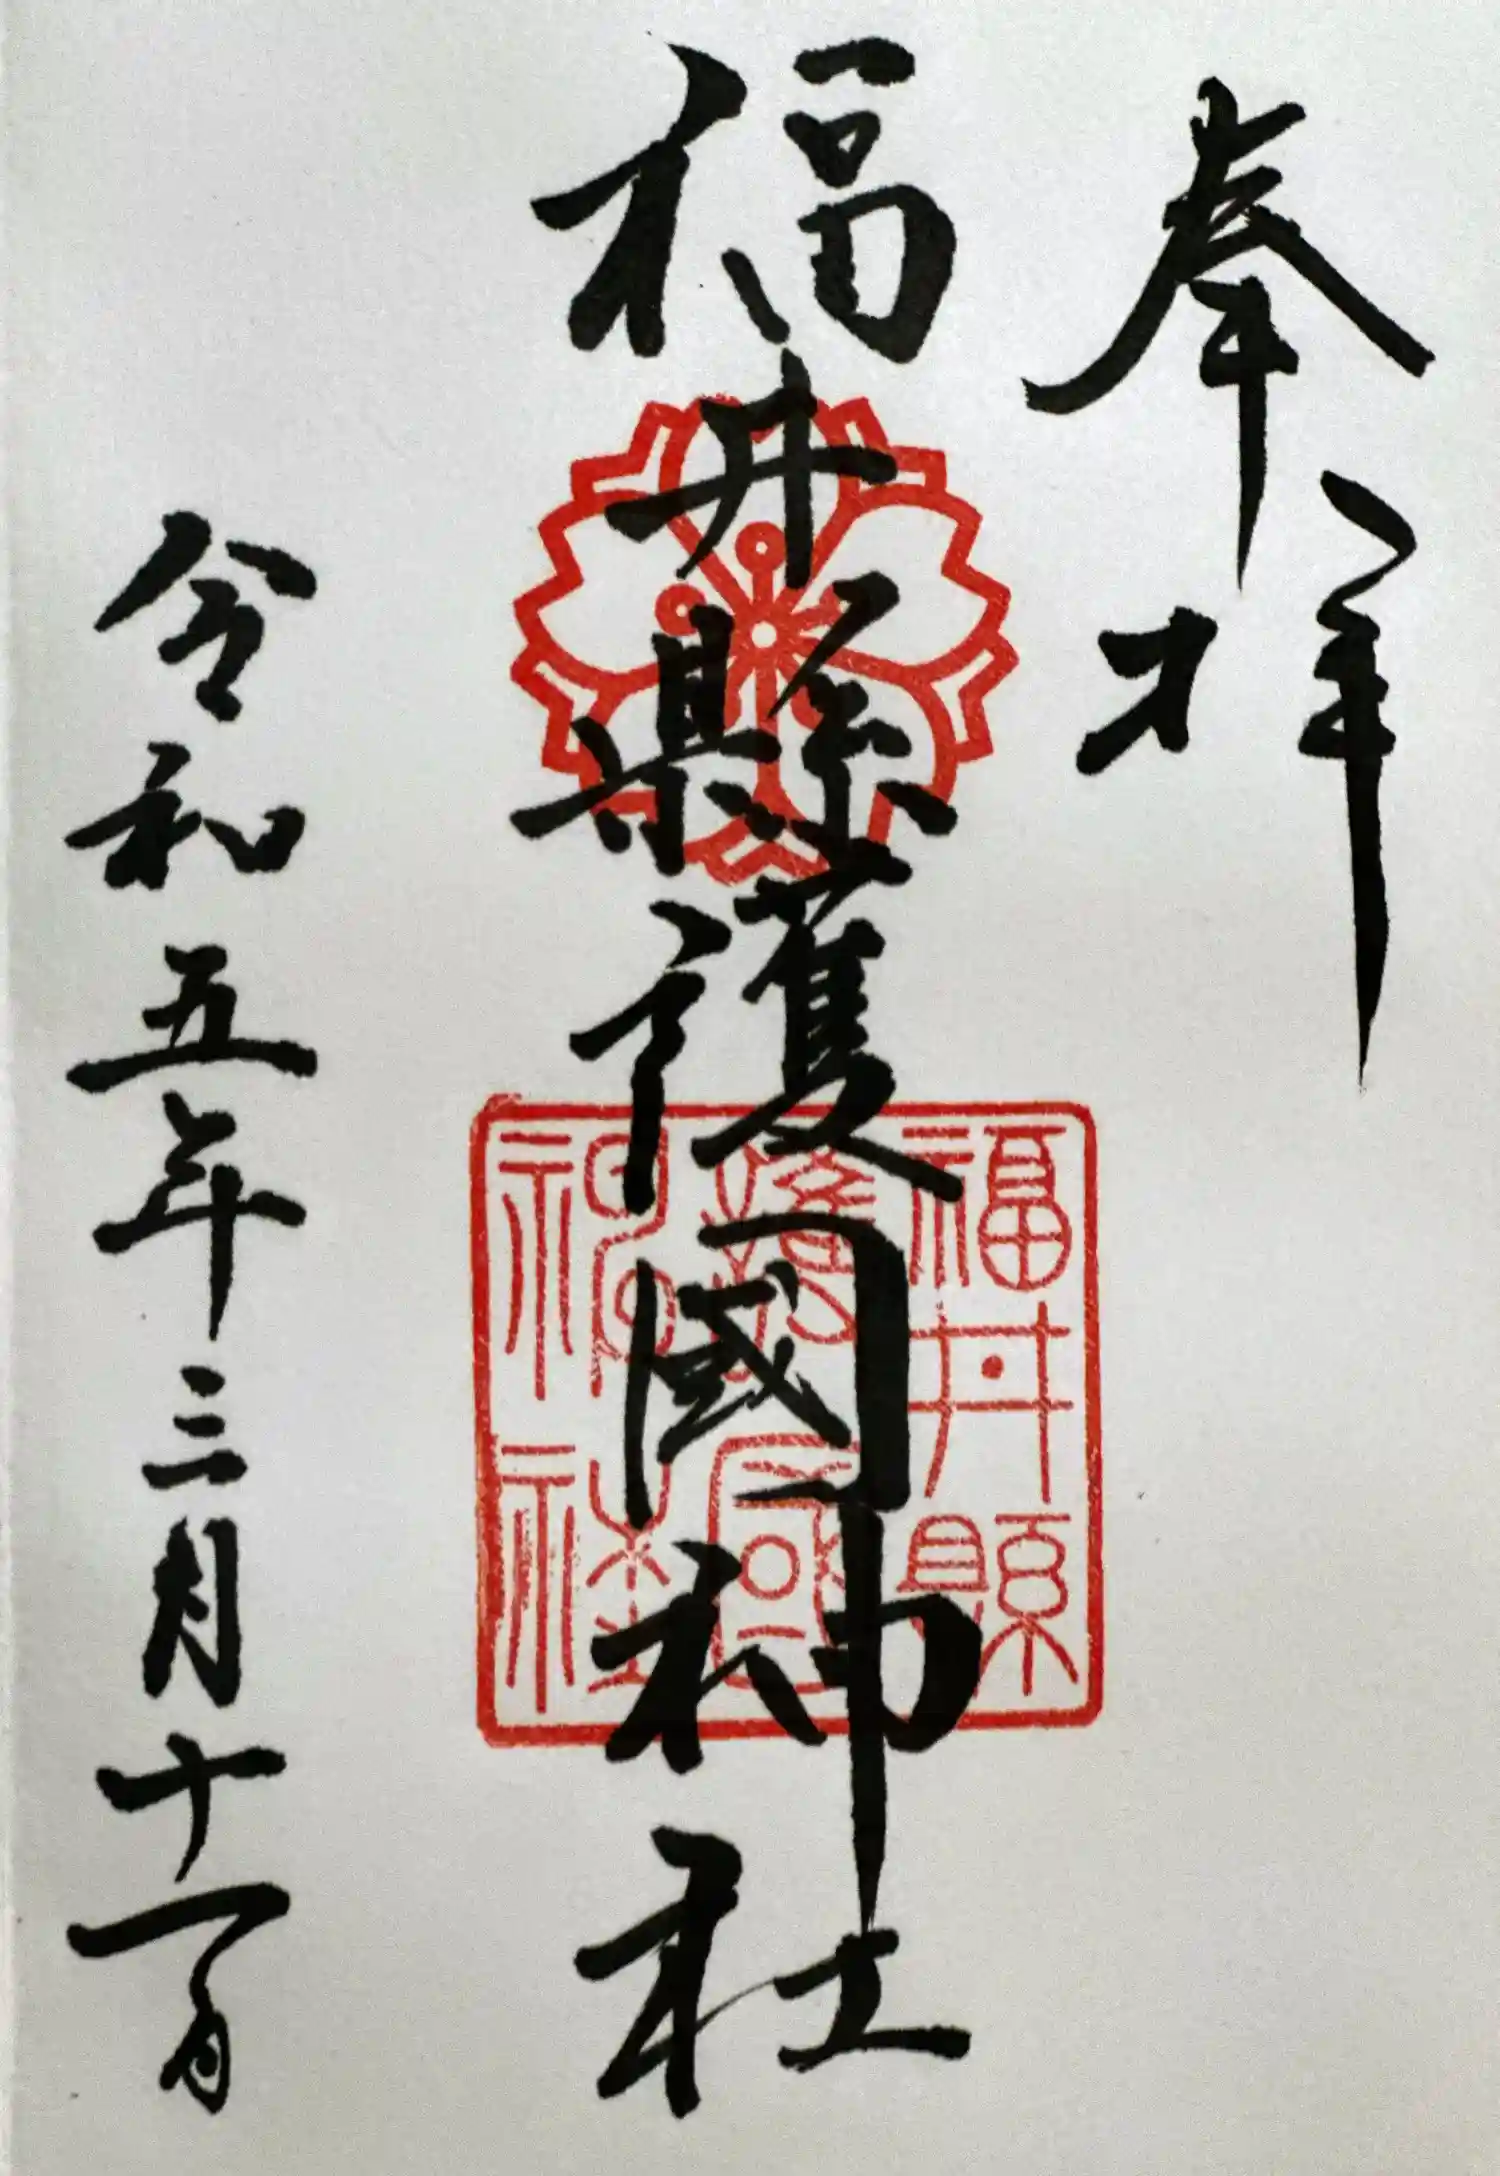 奉拜
福井縣護國神社
令和五年三月十一日
福井縣
護國
神社